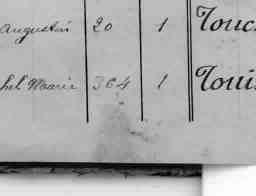 Augustin 20 1 Touc
hel Marie 364 1 Toui